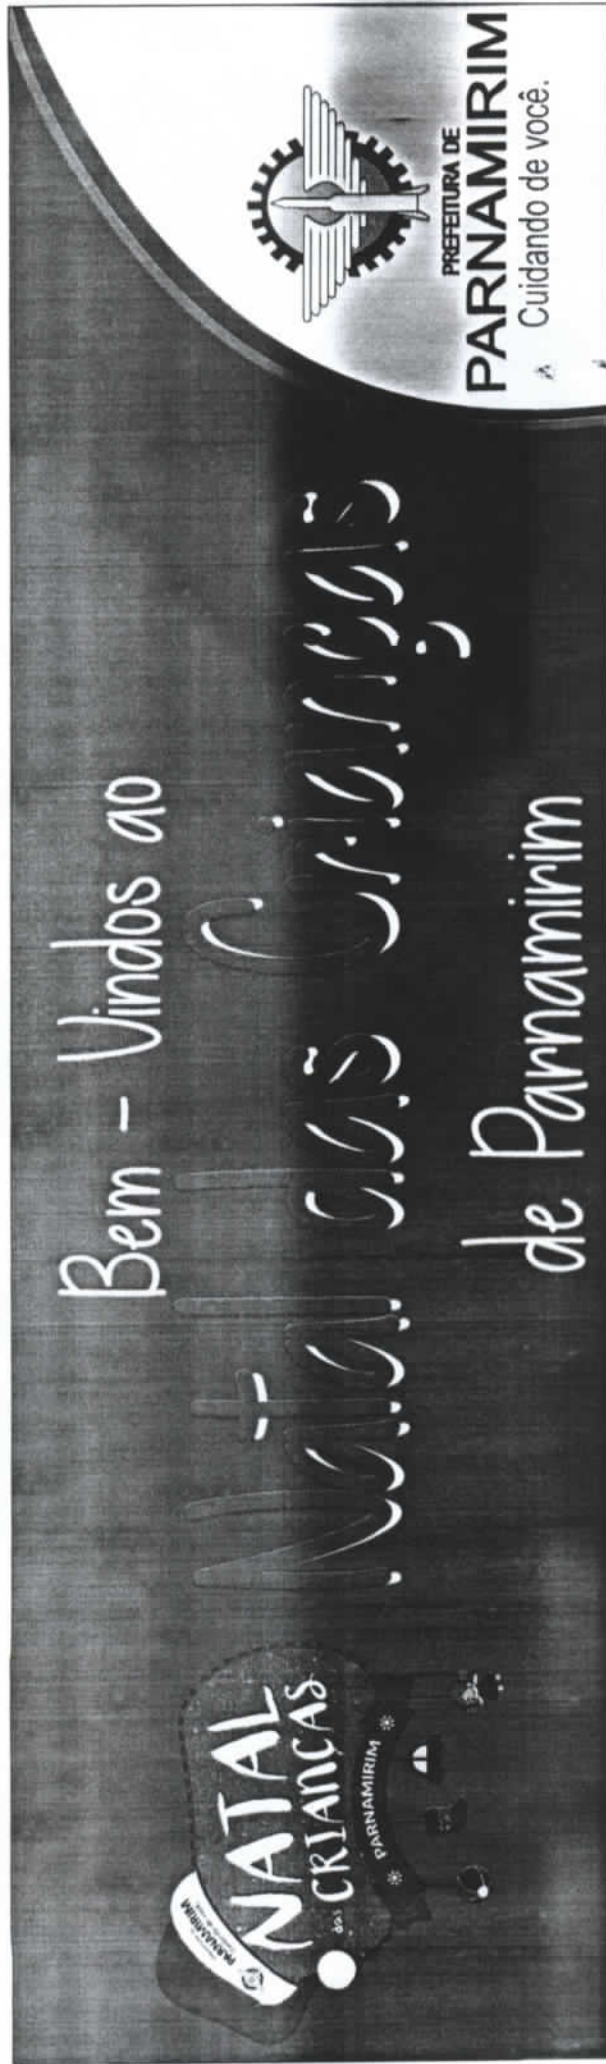 PARNAMIRIM
NATAL
das CRIANÇAS
PARNAMIRIM
Bem - Vindos ao
Natal das Crianças
de Parnamirim
PREFEITURA DE
PARNAMIRIM
Cuidando de você.